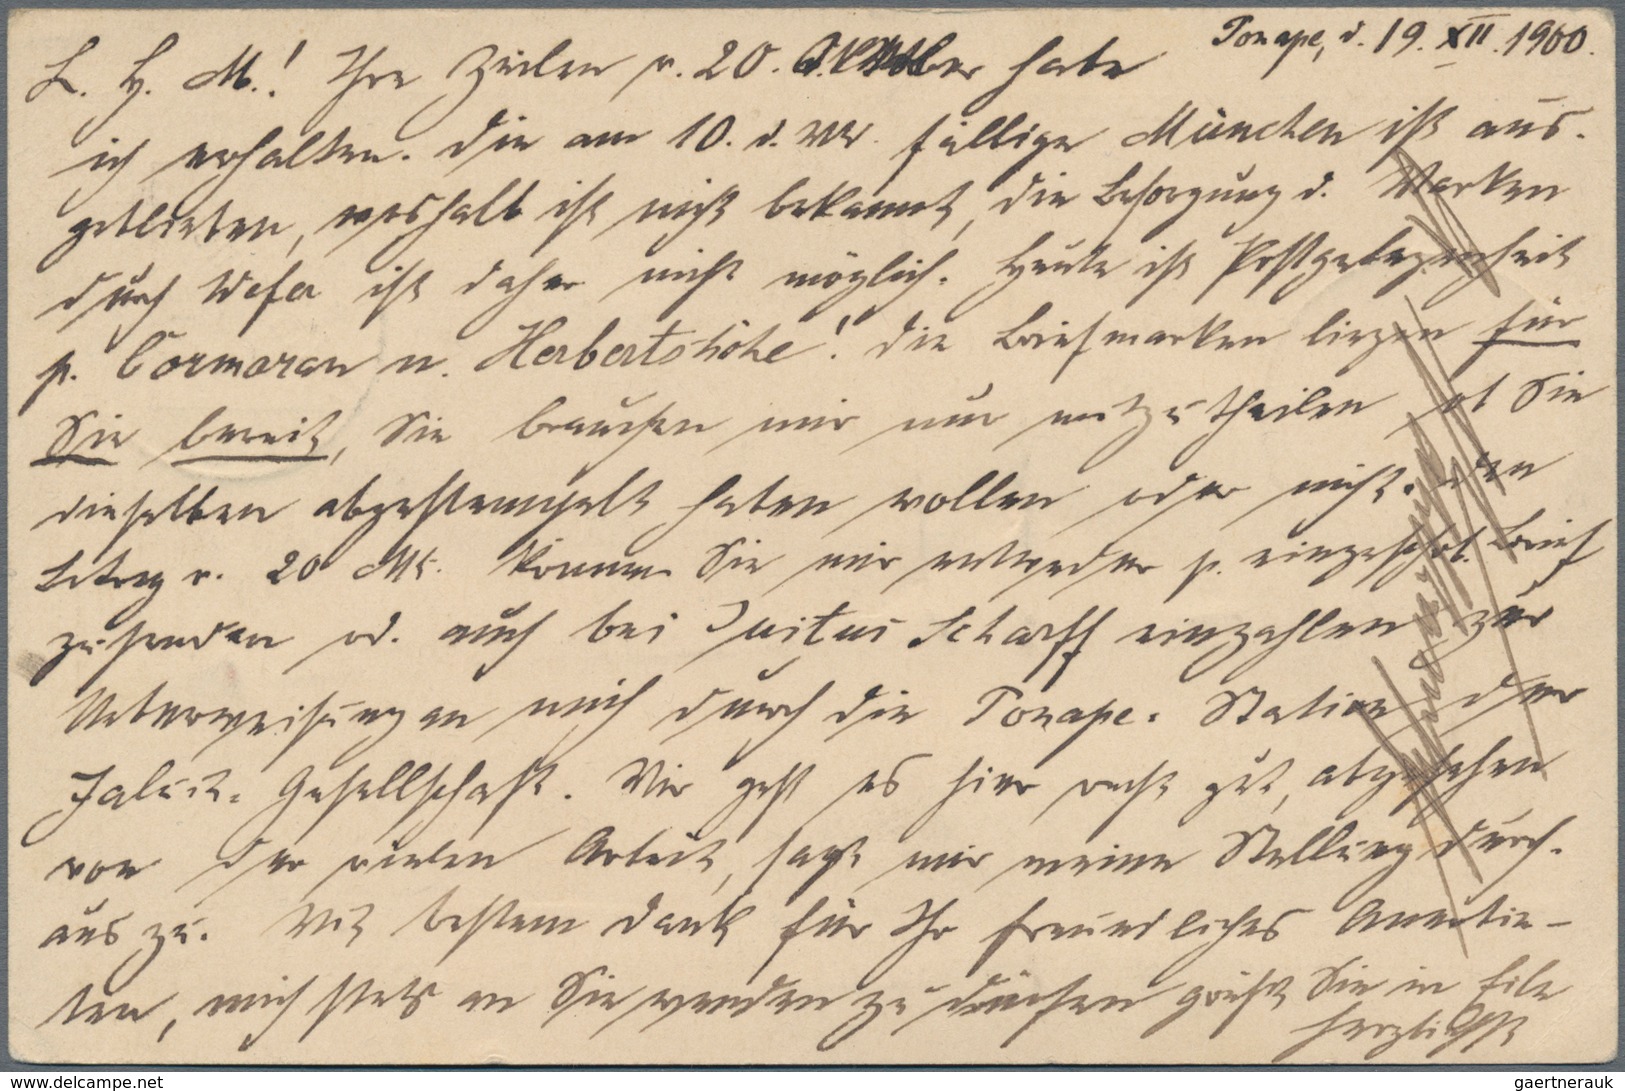 Ponape, d. 19. XII. 1900.
L. H. M.! Ihre Zeilen v. 20. Oktober habe
ich erhalten. Die am 10. d. Mts. fällige München ist aus-
geblieben, weshalb ist nicht bekannt, die Besorgung d. Marken
durch Wefer ist daher nicht möglich. Heute ist Postgelegenheit
p. Cormoran n. Herbertshöhe! Die Briefmarken liegen für
Sie bereit, Sie brauchen mir nur mitzutheilen ob Sie
dieselben abgestempelt haben wollen oder nicht. Den
Betrag v. 20 Mk. können Sie mir entweder p. eingeschr. Brief
zusenden od. auch bei Scharff einzahlen zur
Ueberweisung an mich durch die Ponape-Station der
Jaluit-Gesellschaft. Mir geht es hier recht gut, abgesehen
von der vielen Arbeit, sagt mir meine Stellung durch-
aus zu. Mit bestem Dank für Ihr freundliches Anerbie-
ten, mich stets an Sie wenden zu dürfen grüßt Sie in Eile
herzlichst
www.delcampe.net
gaertnerauk